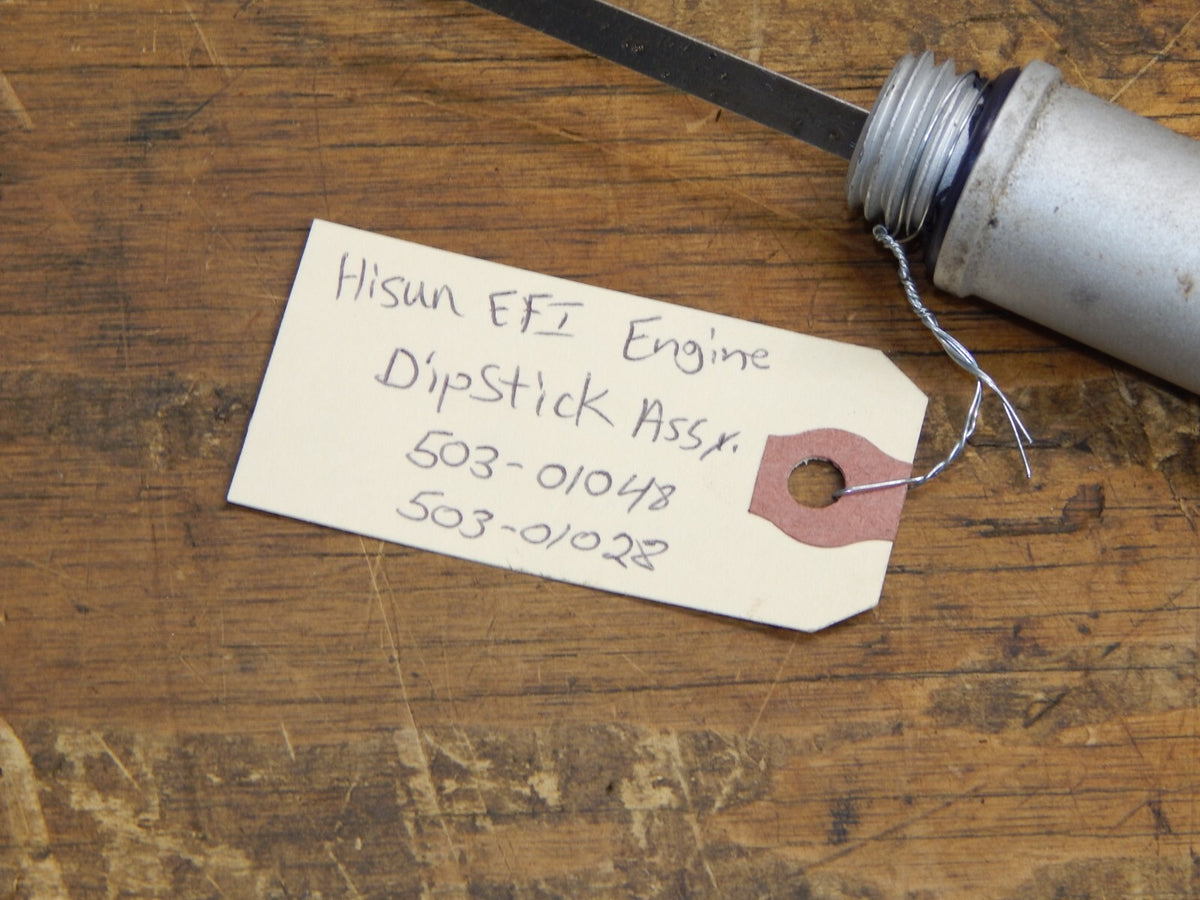 Hisun EFI Engine
DipStick Assy.
503-01048
503-01028